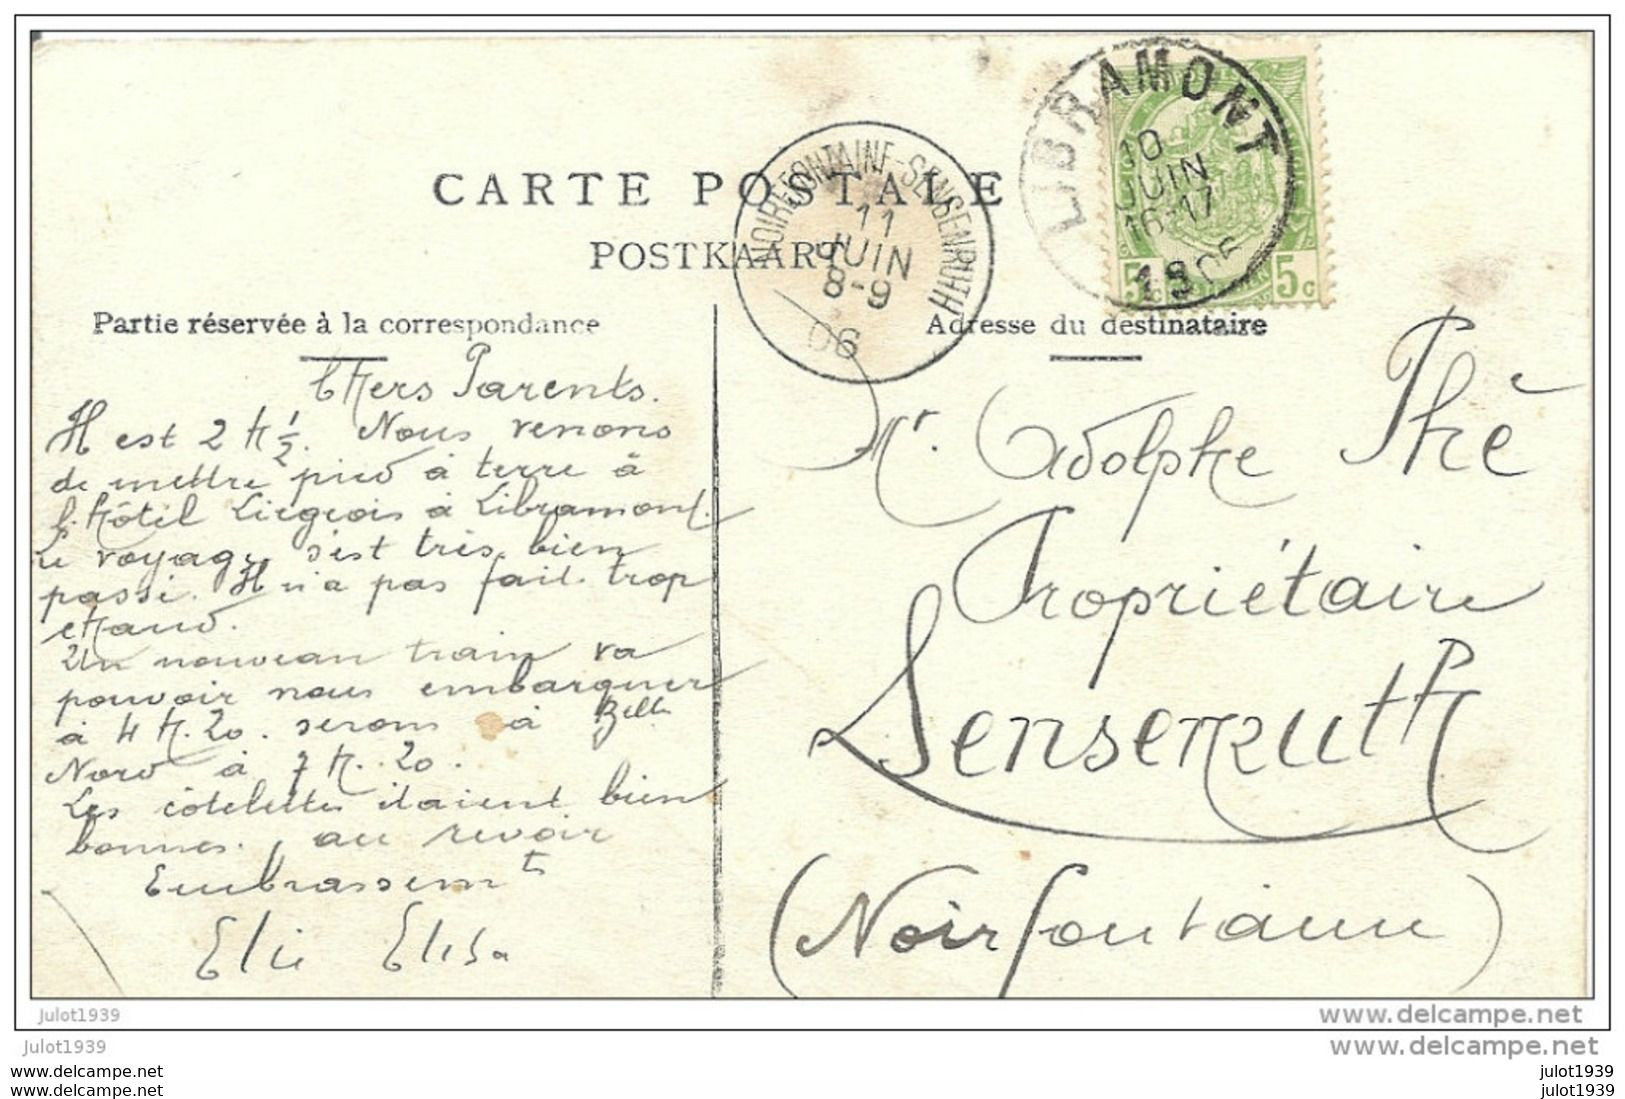 CARTE POSTALE
POSTKAART
NOIREFONTAINE-SENSENRUTH
11
JUIN
8-9
06
LIBRAMONT
10
JUIN
16-17
190
5c 5c
Partie réservée à la correspondance
Adresse du destinataire
Chers Parents.
Il est 2 h ½. Nous venons
de mettre pied à terre à
l'hôtel Liégeois à Libramont.
Le voyage s'est très bien
passé. Il n'a pas fait trop
chaud.
Un nouveau train va
pouvoir nous embarquer
à 4 h. 20. serons à
Nord à 7 h. 20.
Les côtelettes étaient bien
bonnes. au revoir
Embrassemts
Elie Elisa
Mr. Adolphe Thé
Propriétaire
Sensenruth
(Noirfontaine)
julot1939
julot1939
www.delcampe.net
www.delcampe.net
www.delcampe.net
www.delcampe.net
julot1939
julot1939